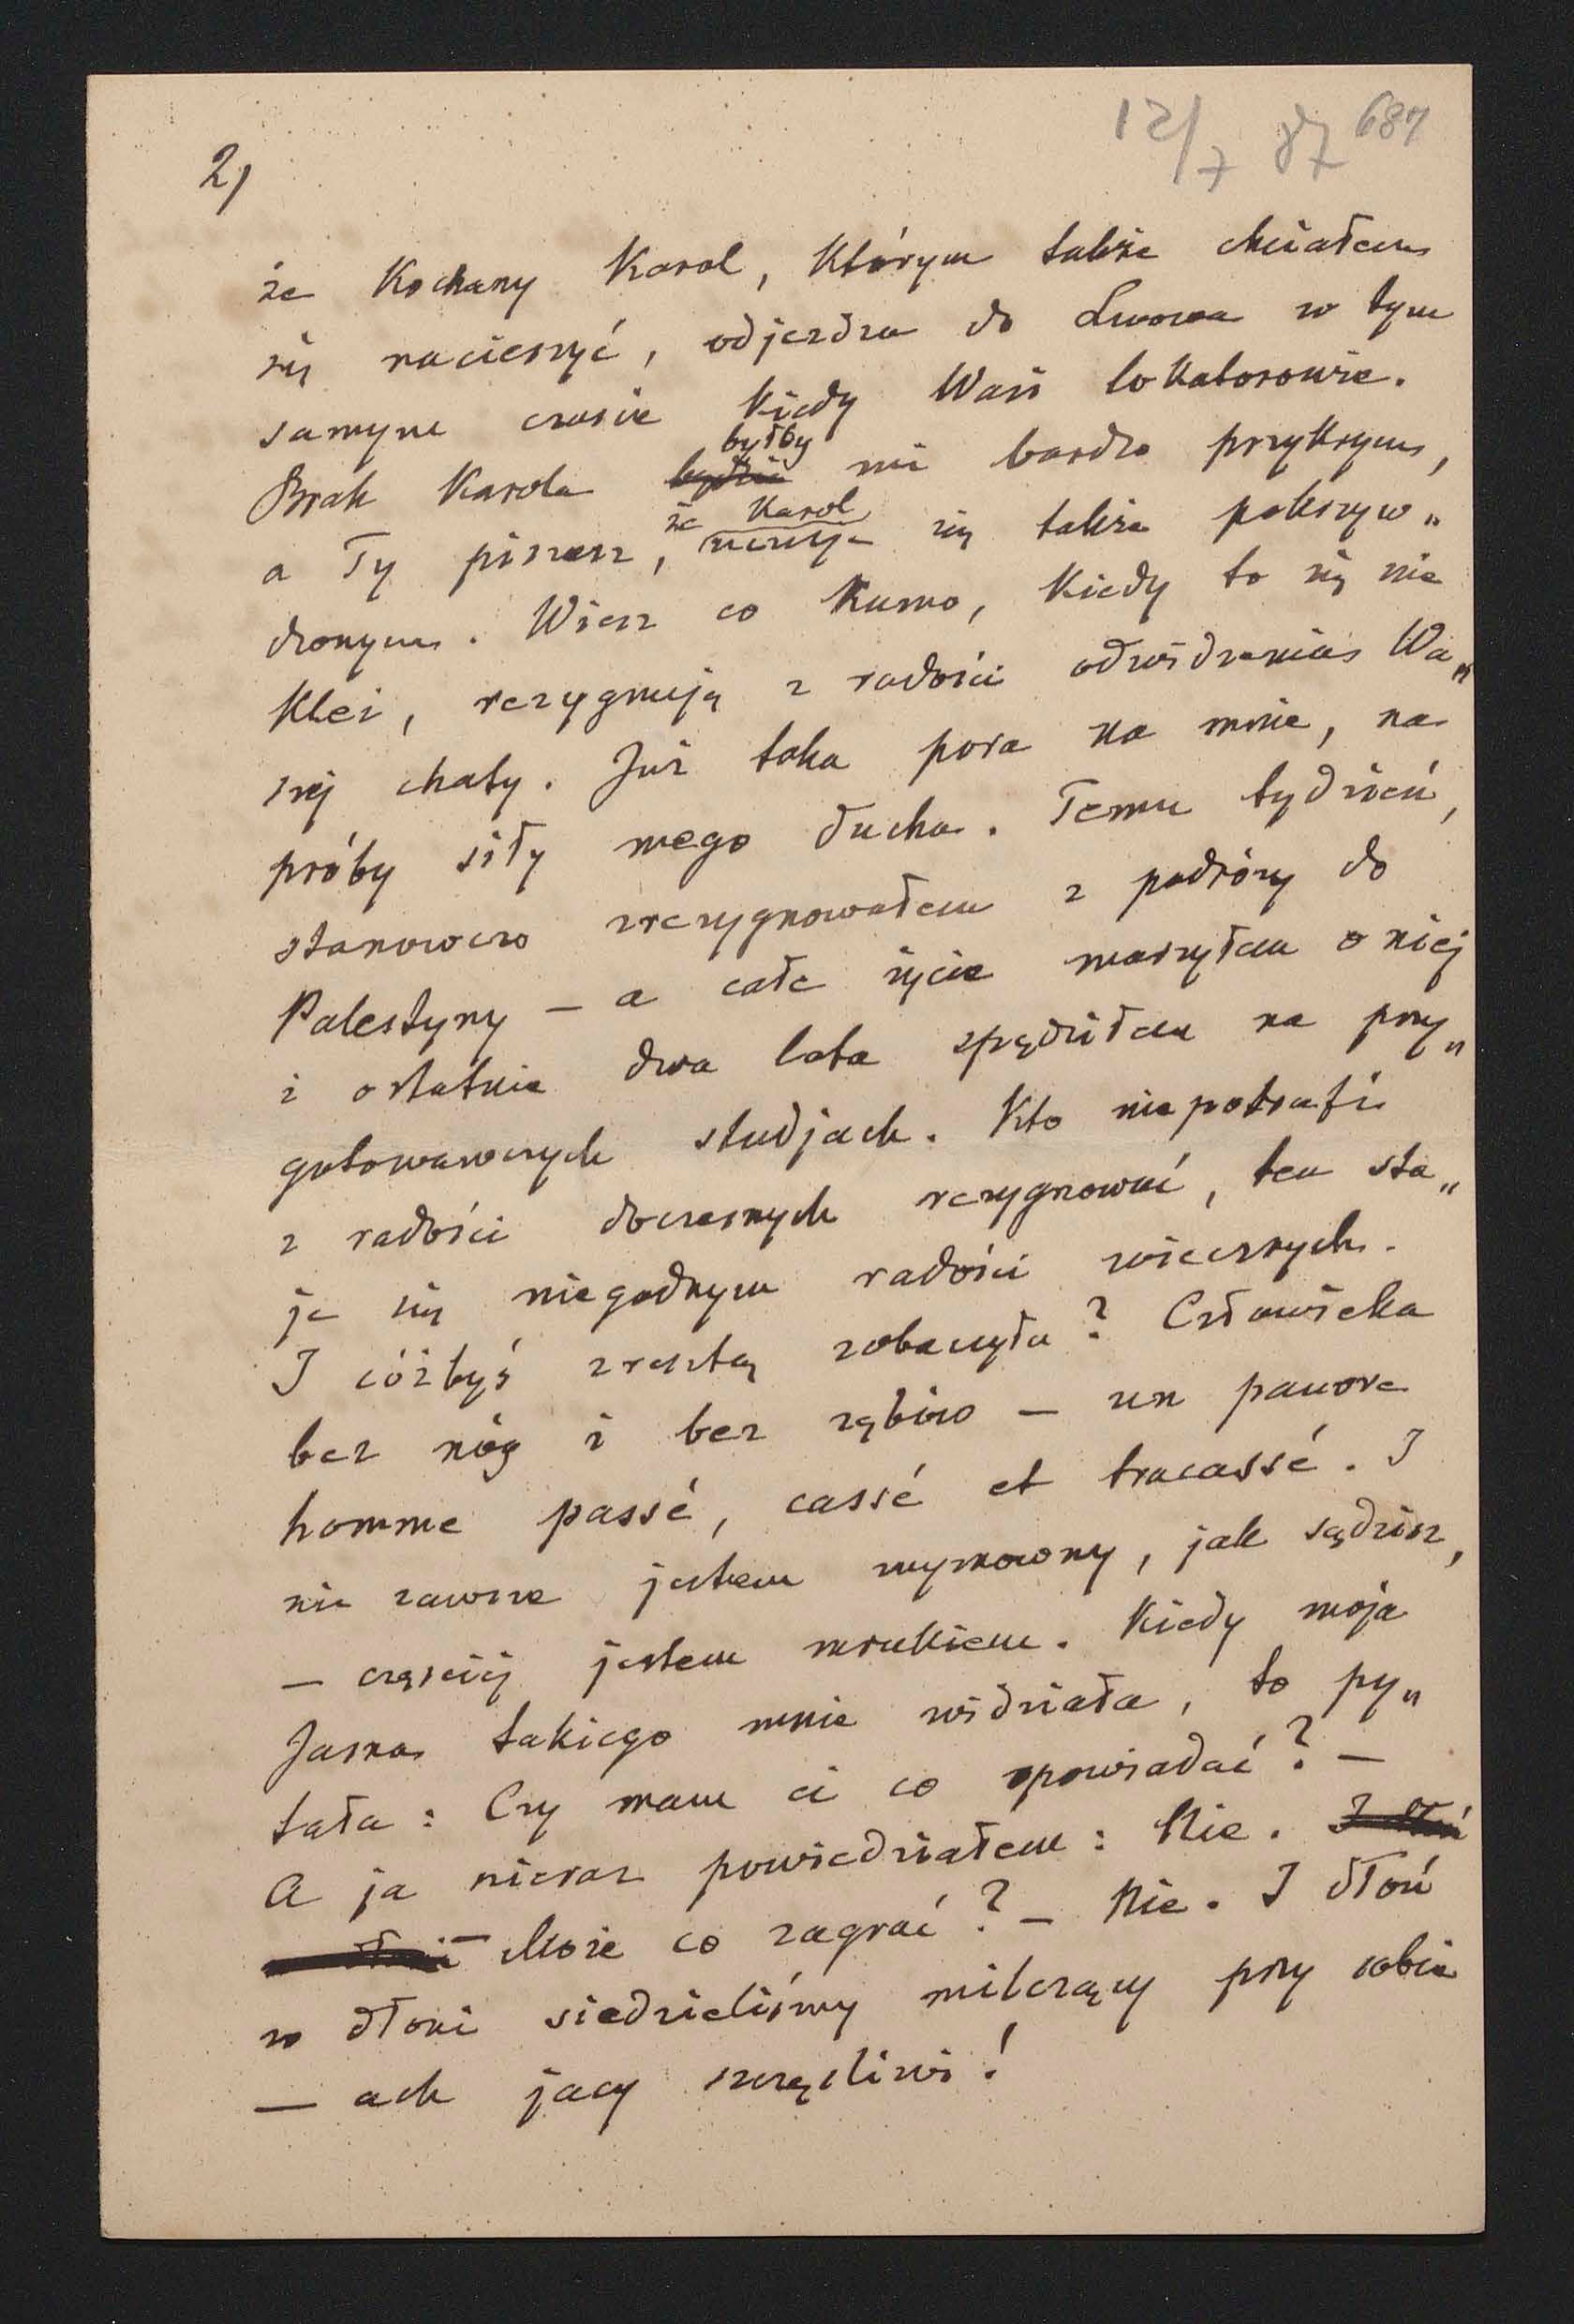 12/7 87 687
2)
że Kochany Karol, którym także chciałem
się nacieszyć, odjeżdża do Lwowa w tym
samym czasie kiedy Wasi lokatorowie.
byłby
Brak Karola będzie mi bardzo przykrym,
że Karol
a Ty piszesz, uczuje się także pokrzyw„
dzonym. Wiesz co Kumo, kiedy to się nie
klei, rezygnuję z radości odwidzenia Wa„
szej chaty. Już taka pora na mnie, na
próby siły mego ducha. Temu tydzień,
stanowczo zrezygnowałem z podróży do
Palestyny — a całe życie marzyłem o niej
i ostatnie dwa lata spędziłem na przy„
gotowawczych studjach. Kto niepotrafi
z radości doczesnych rezygnować, ten sta„
je się niegodnym radości wiecznych.
I cóżbyś zresztą zobaczyła? Człowieka
bez nóg i bez zębów — un pauvre
homme passé, cassé et tracassé. I
nie zawsze jestem wymowny, jak sądzisz,
— częściej jestem mrukiem. Kiedy moja
Jasna takiego mnie widziała, to py„
tała: Czy mam ci co opowiadać? —
A ja nieraz powiedziałem: Nie. I dłoń
— Może co zagrać? — Nie. I dłoń
w dłoni siedzieliśmy milczący przy sobie
— ach jacy szczęśliwi!